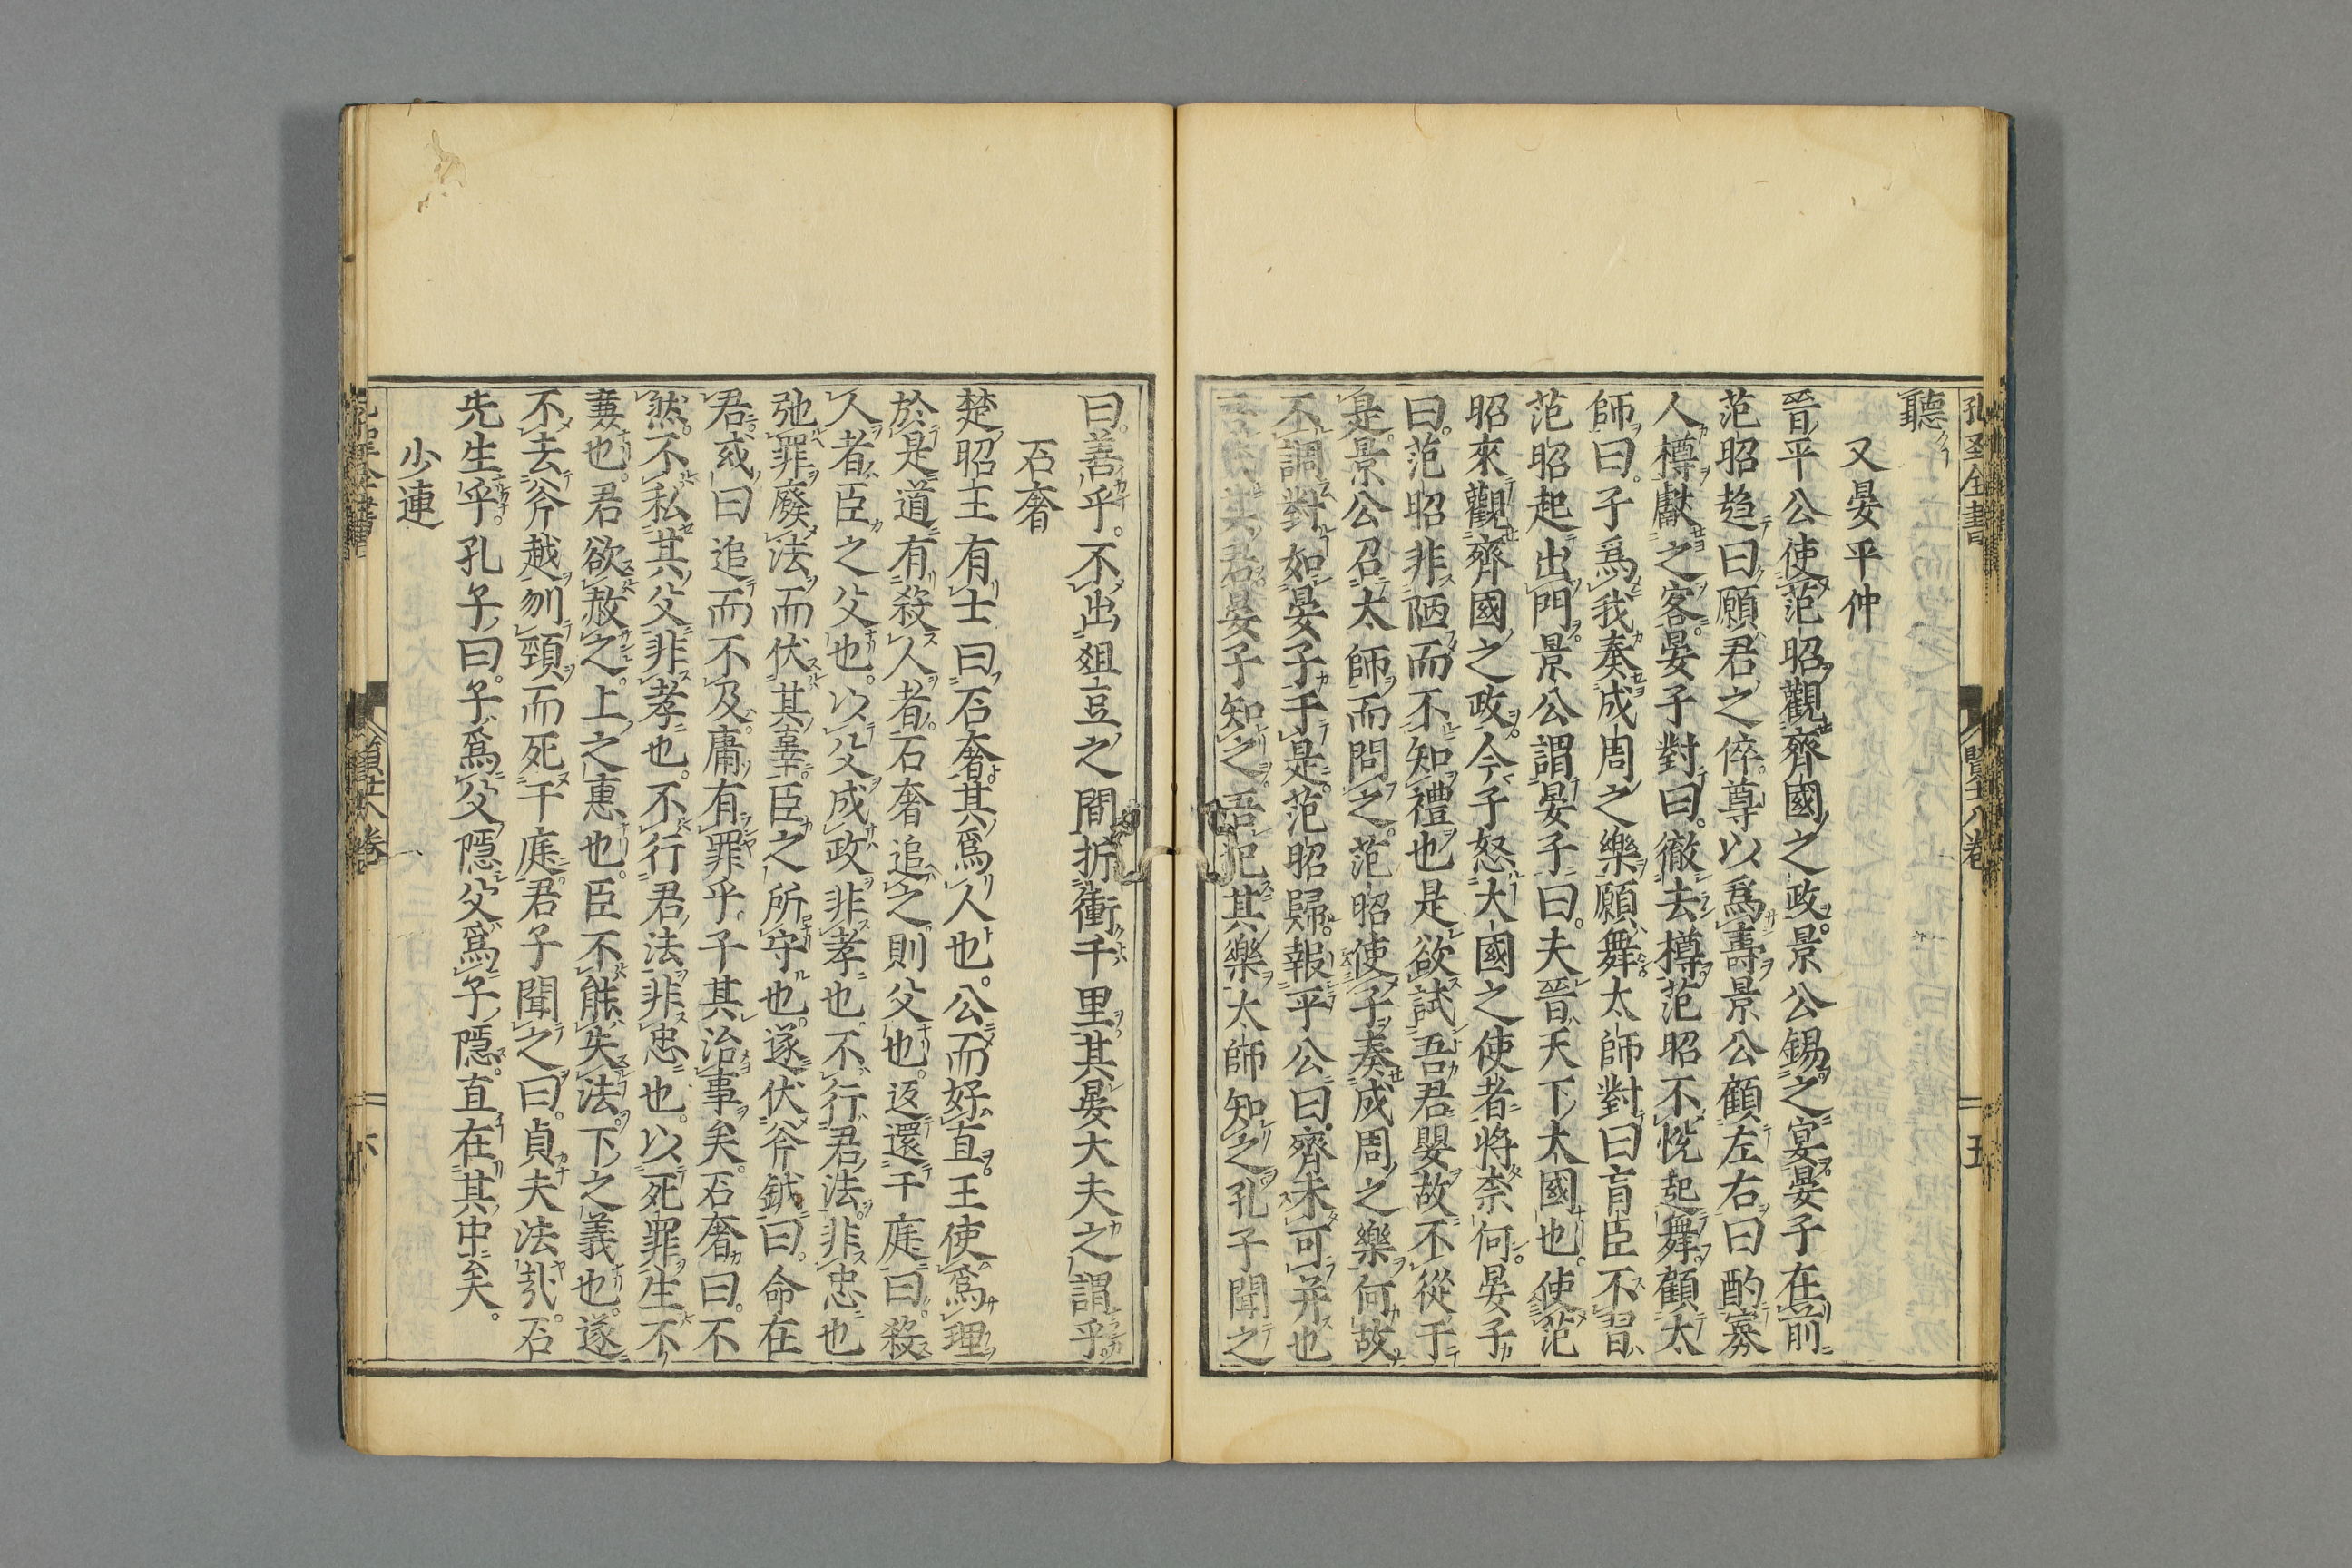 聽
又晏平仲
晉平公使范昭觀齊國之政景公錫之宴晏子在前
范昭趋曰願君之倅尊以爲壽景公顧左右曰酌寡
人樽獻之客晏子對曰徹去樽范昭不悦起舞顧太
師曰子爲我奏成周之樂願舞太師對曰盲臣不習
范昭起出門景公謂晏子曰夫晉天下大國也使范
昭來觀齊國之政今子怒大國之使者將柰何晏子
曰范昭非陋而不知禮也是欲試吾君嬰故不從于
是景公召太師而問之范昭使子奏成周之樂何故
不調對如晏子于是范昭歸報平公曰齊未可并也
其君晏子知之吾犯其樂大師知之孔子聞之
曰善乎不出爼豆之間折衝千里其晏大夫之謂乎
石奢
楚昭王有士曰石奢其爲人也公而好直王使爲理
於是道有殺人者石奢追之則父也返還于庭曰殺
人者臣之父也以父成政非孝也不行君法非忠也
弛罪廢法而伏其辜臣之所守也遂伏斧鉞曰命在
君或曰追而不及庸有罪乎子其治事矣石奢曰不
然不私其父非孝也不行君法非忠也以死罪生不
兼也君欲赦之上之惠也臣不能失法下之義也遂
不去斧越刎頸而死于庭君子聞之曰貞夫法哉石
先生乎孔子曰子爲父隠父爲子隠直在其中矣
少連